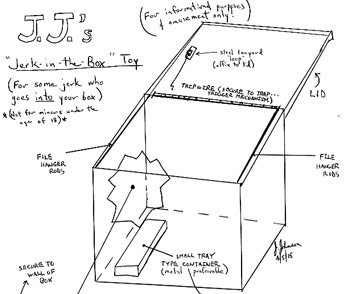 J.J.'s
"Jerk-in-the-Box" Toy
(For some jerk who
goes into your box)
*(Not for minors under the
age of 18)*
(For informational purposes
& amusement only!)
steel lanyard
loop
(affix to lid)
TRIPWIRE (SECURE TO TRAP...
TRIGGER MECHANISM)
LID
FILE
HANGER
RODS
FILE
HANGER
RODS
SMALL TRAY
TYPE CONTAINER
(metal preferable)
SECURE TO
WALL OF
BOX